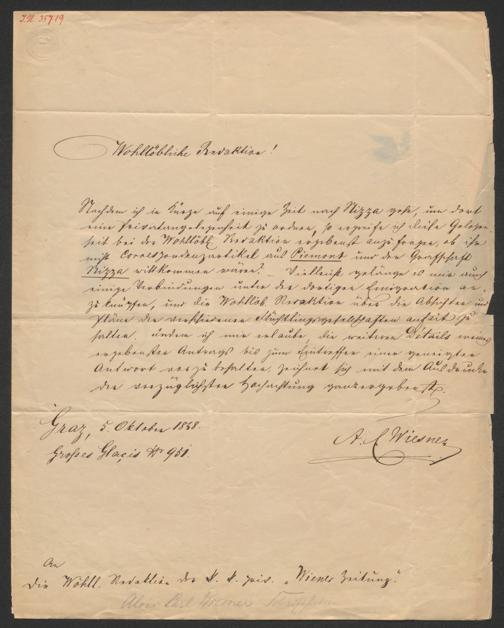 I.N. 35719
Wohllöbliche Redaktion!
Nachdem ich in Kürze auf einige Zeit nach Nizza gehe, um dort
eine Privatangelegenheit zu ordnen, so ergreife ich diese Gelegen-
heit bei der Wohllöbl. Redaktion ergebenst anzufragen, ob ihr
nicht Correspondenzartikel aus Piemont und der Grafschaft
Nizza willkommen wären? – Vielleicht gelänge es mir auch
einige Verbindungen unter der dortigen Emigration an-
zuknüpfen, und die Wohllöb Redaktion über die Absichten und
Pläne der verschiedenen Flüchtlingsgesellschaften au fait zu
halten. Indem ich mir erlaube, die weiteren Details meines
ergebensten Antrags bis zum Eintreffen einer geneigten
Antwort vorzubehalten, zeichnet sich mit dem Ausdrucke
der vorzüglichsten Hochachtung ganz ergebenst
Graz, 5. Oktober 1858.
A. C. Wiesner
Großes Glacis Nr 951.
An
die Wohll. Redaktion der k. k. priv. „Wiener Zeitung".
Alois Carl Wiesner